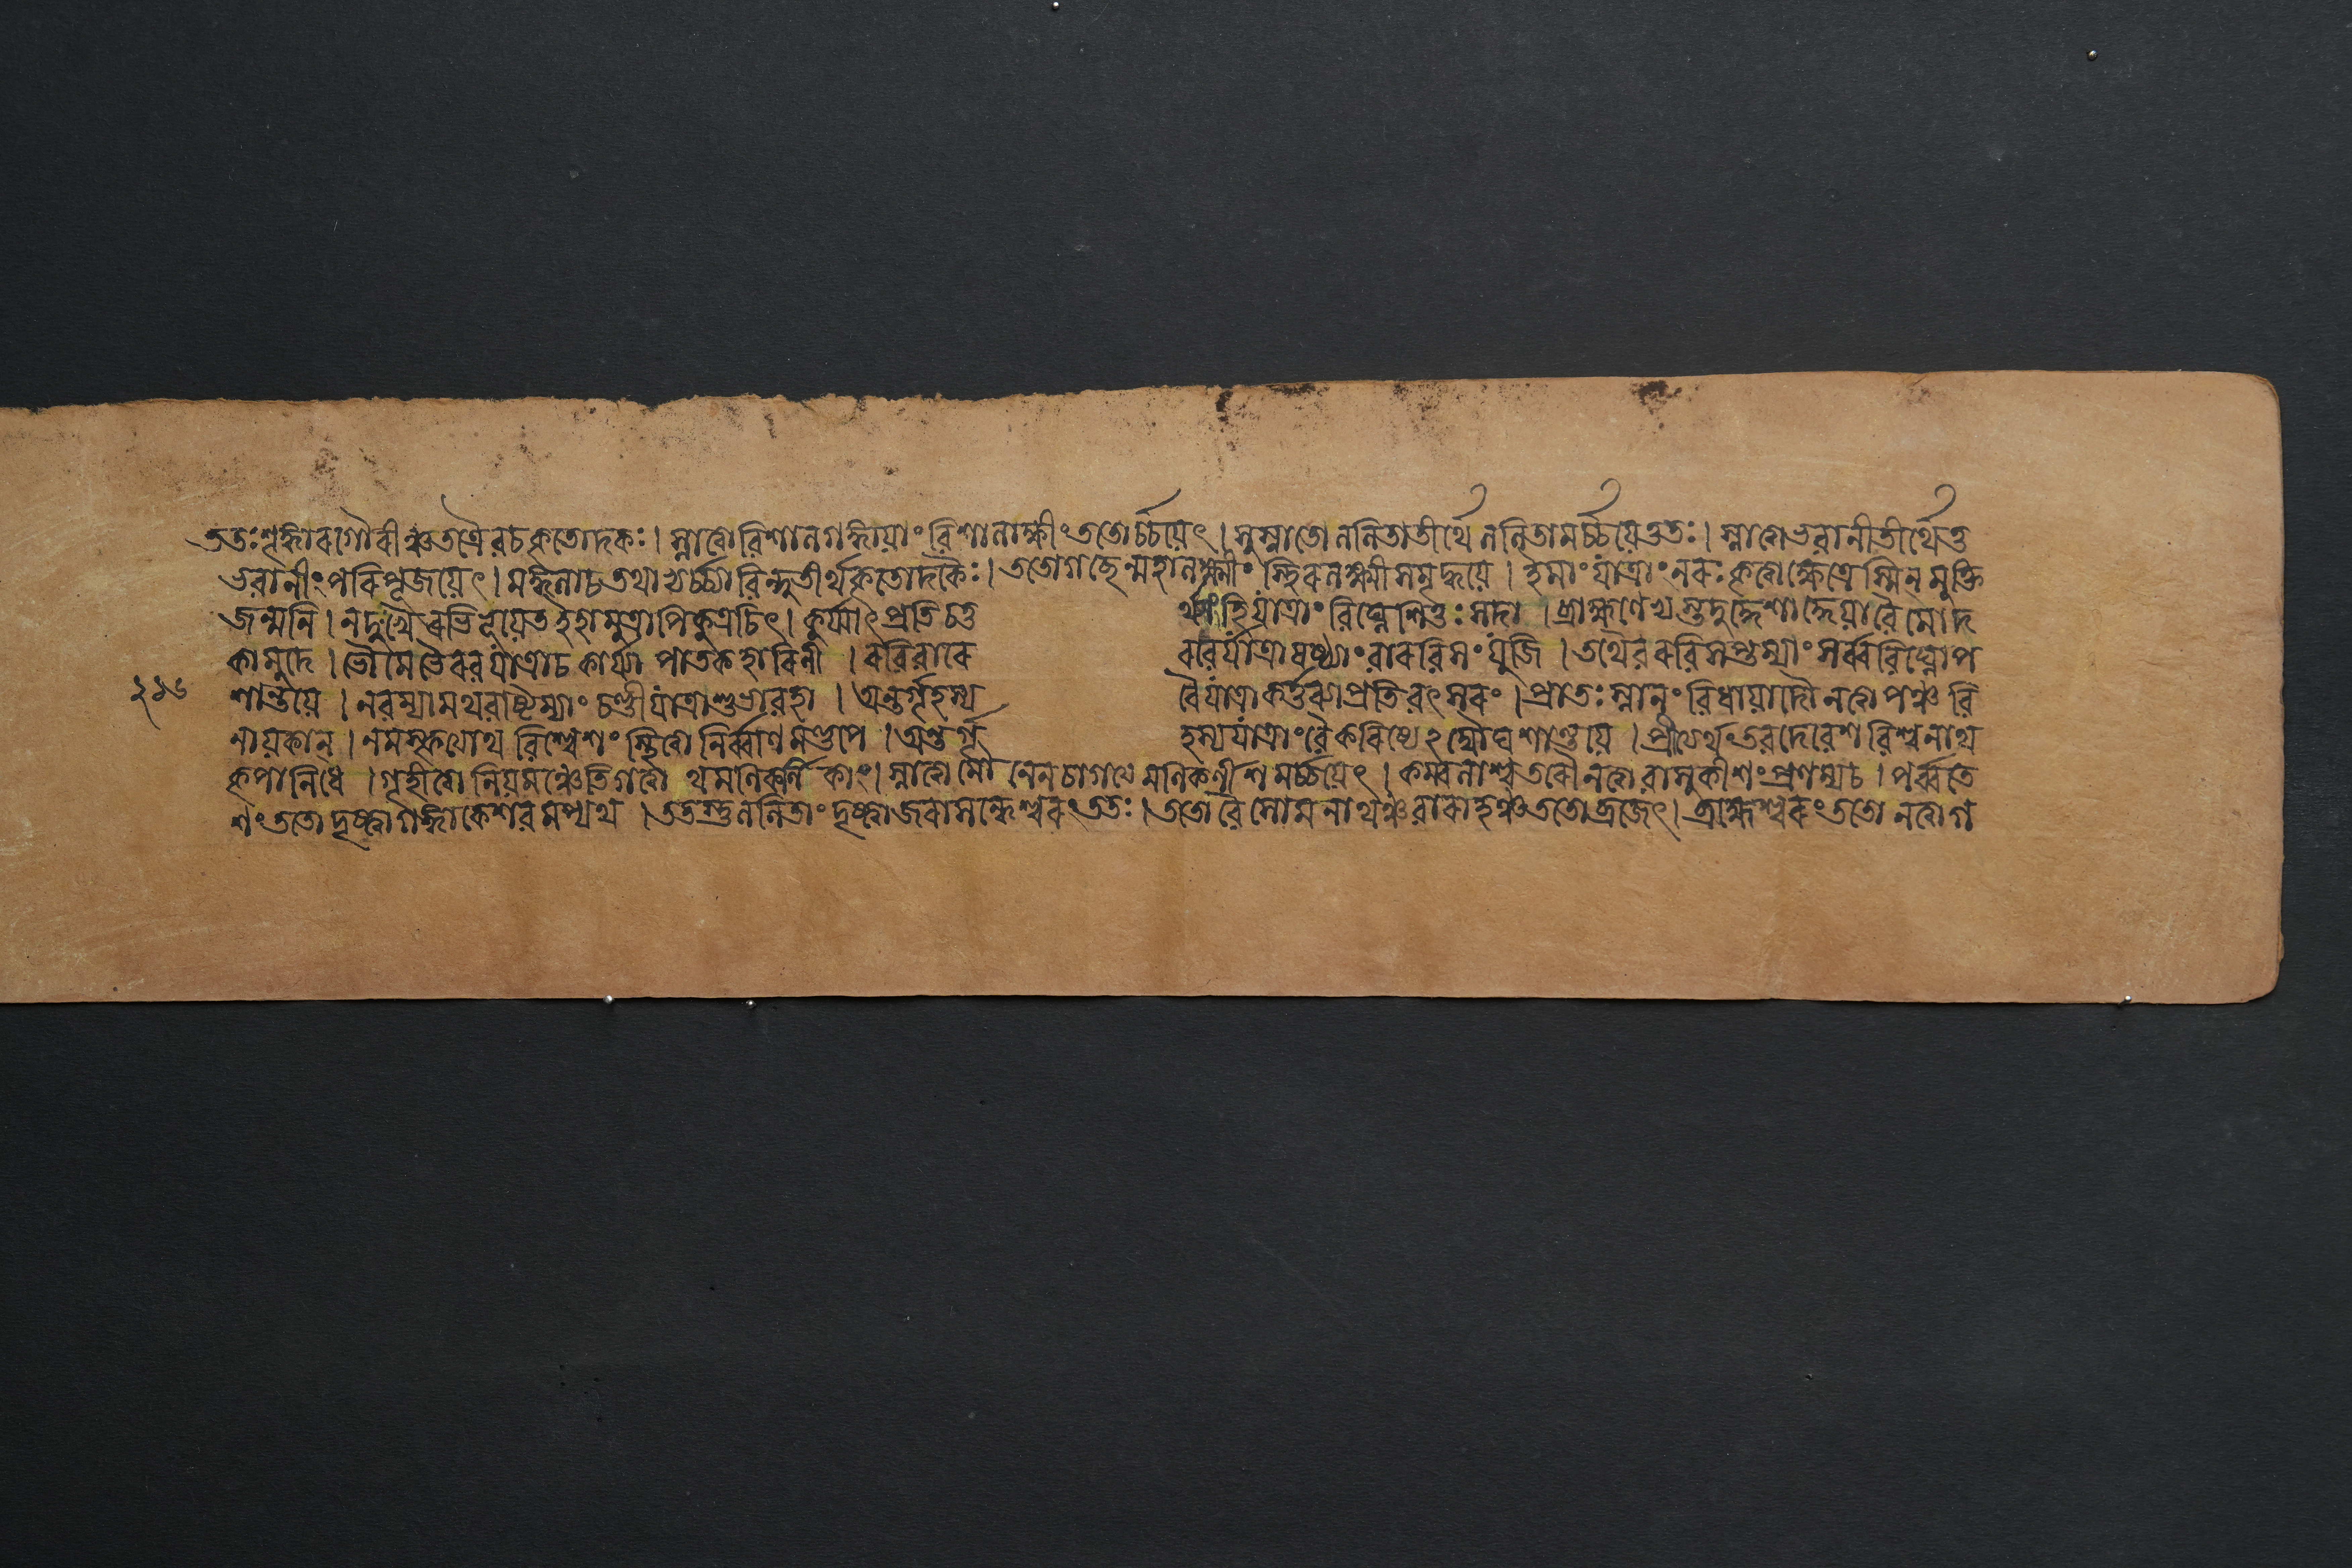 ততঃ শৃঙ্গারগৌরীঞ্চ তত্রৈব চ কৃতোদকঃ। স্নাত্বা বিশালগঙ্গায়াং বিশালাক্ষীং ততোর্চ্চয়েৎ। সুস্নাতো ললিতাতীর্থে ললিতামর্চ্চয়েত্ততঃ। স্নাত্বা ভবানীতীর্থে তু
ভবানীং পরিপূজয়েৎ। মঙ্গলাচ তথাভ্যর্চ্চ্যা বিন্দুতীর্থকৃতোদকৈঃ। ততো গচ্ছেন্মহালক্ষ্মীং স্থিরলক্ষ্মীসমৃদ্ধয়ে। ইমাং যাত্রাং নরঃ কৃত্বা ক্ষেত্রেস্মিন্ মুক্তি
জন্মনি। ন দুঃখৈরভিভূয়েত ইহামুত্রাপি কুত্রচিৎ। কুর্য্যাৎ প্রতিচতুর্থ্যাং হি যাত্রাং বিঘ্নেশিতুঃ সদা। ব্রাহ্মণেভ্যস্তদুদ্দেশাদ্দেয়া বৈ মোদ
কা মুদে। ভৌমে ভৈরবযাত্রা চ কার্য্যা পাতকহারিণী। রবিবারে রবের্যাত্রা ষষ্ঠ্যাং বা রবিসংযুজি। তথৈব রবিসপ্তম্যাং সর্ব্ববিঘ্নোপ
২১৬ শান্তয়ে। নবম্যামথবাষ্টম্যাং চণ্ডীযাত্রা শুভাবহা। অন্তর্গৃহস্য বৈ যাত্রা কর্ত্তব্যা প্রতিবৎসরং। প্রাতঃ স্নানং বিধায়াদৌ নত্বা পঞ্চ বি
নায়কান্। নমস্কৃত্যোথ বিশ্বেশং স্থিত্বা নির্ব্বাণমণ্ডপে। অন্তর্গৃহস্য যাত্রাং বৈ করিষ্যে২ঘৌঘশান্তয়ে। দেবেশ বিশ্বনাথ
কৃপানিধে। গৃহীত্বা নিয়মঞ্চেতি গত্বাথ মণিকর্ণিকাং। স্নাত্বা মৌনেন চাগত্য মণিকর্ণীশমর্চ্চয়েৎ। কম্বলাশ্বতরৌ নত্বা বাসুকীশং প্রণম্য চ। পর্ব্বতে
শং ততো দৃষ্ট্বা গঙ্গাকেশবমপ্যথ। ততস্তু ললিতাং দৃষ্ট্বা জরাসন্ধেশ্বরং ততঃ। ততো বৈ সোমনাথঞ্চ বারাহঞ্চ ততো ব্রজেৎ। ব্রহ্মেশ্বরং ততো নত্বা গ